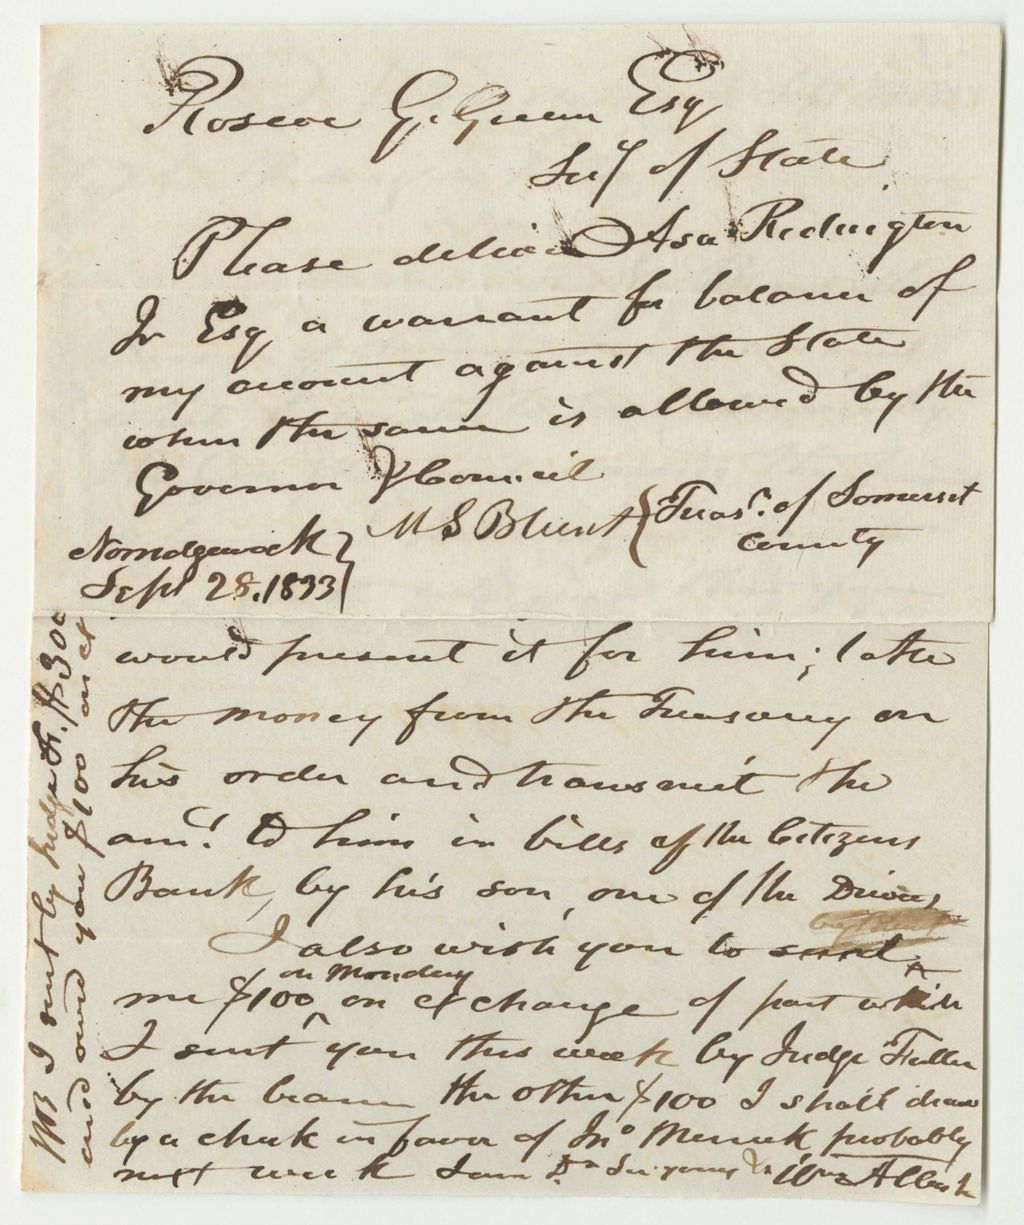 Roscoe G. Green Esq
Secy of State
Please deliver Asa Redington
Jr Esq a warrant for balance of
my account against the State
when the same is allowed by the
Governor & Council
M S Blunt { Treasr. of Somerset
County
Norridgewock }
Sept 28, 1833
would present it for him; take
the money from the Treasury on
his order and transmit the
amt. to him in bills of the Citizens
Bank, by his son, one of the Drivers
I also wish you to send
me $100 on Monday on exchange of part which
I sent you this week by Judge Fuller
by the bearer the other $100 I shall draw
by a check in favor of Jno Merrick probably
next week I am Dr Sir yours &c Wm Allen Jr
NB I sent by Judge F. $300
and owed you $100 on ct